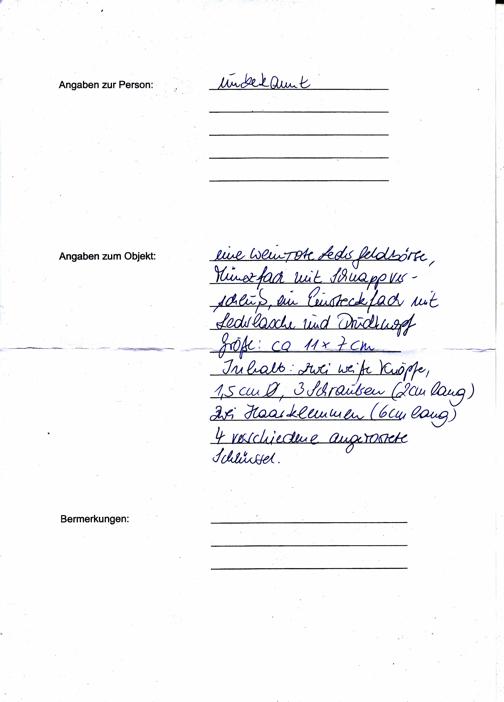 Angaben zur Person:
unbekannt
Angaben zum Objekt:
eine weinrote Ledergeldbörse,
Münzfach mit Schnappver-
schluß, ein Einsteckfach mit
Lederlasche und Druckknopf
Größe: ca 11 x 7 cm
Inhalt: zwei weiße Knöpfe,
1,5 cm Ø, 3 Schrauben (2cm lang)
zwei Haarklemmen (6cm lang)
4 verschiedene angerostete
Schlüssel.
Bermerkungen: